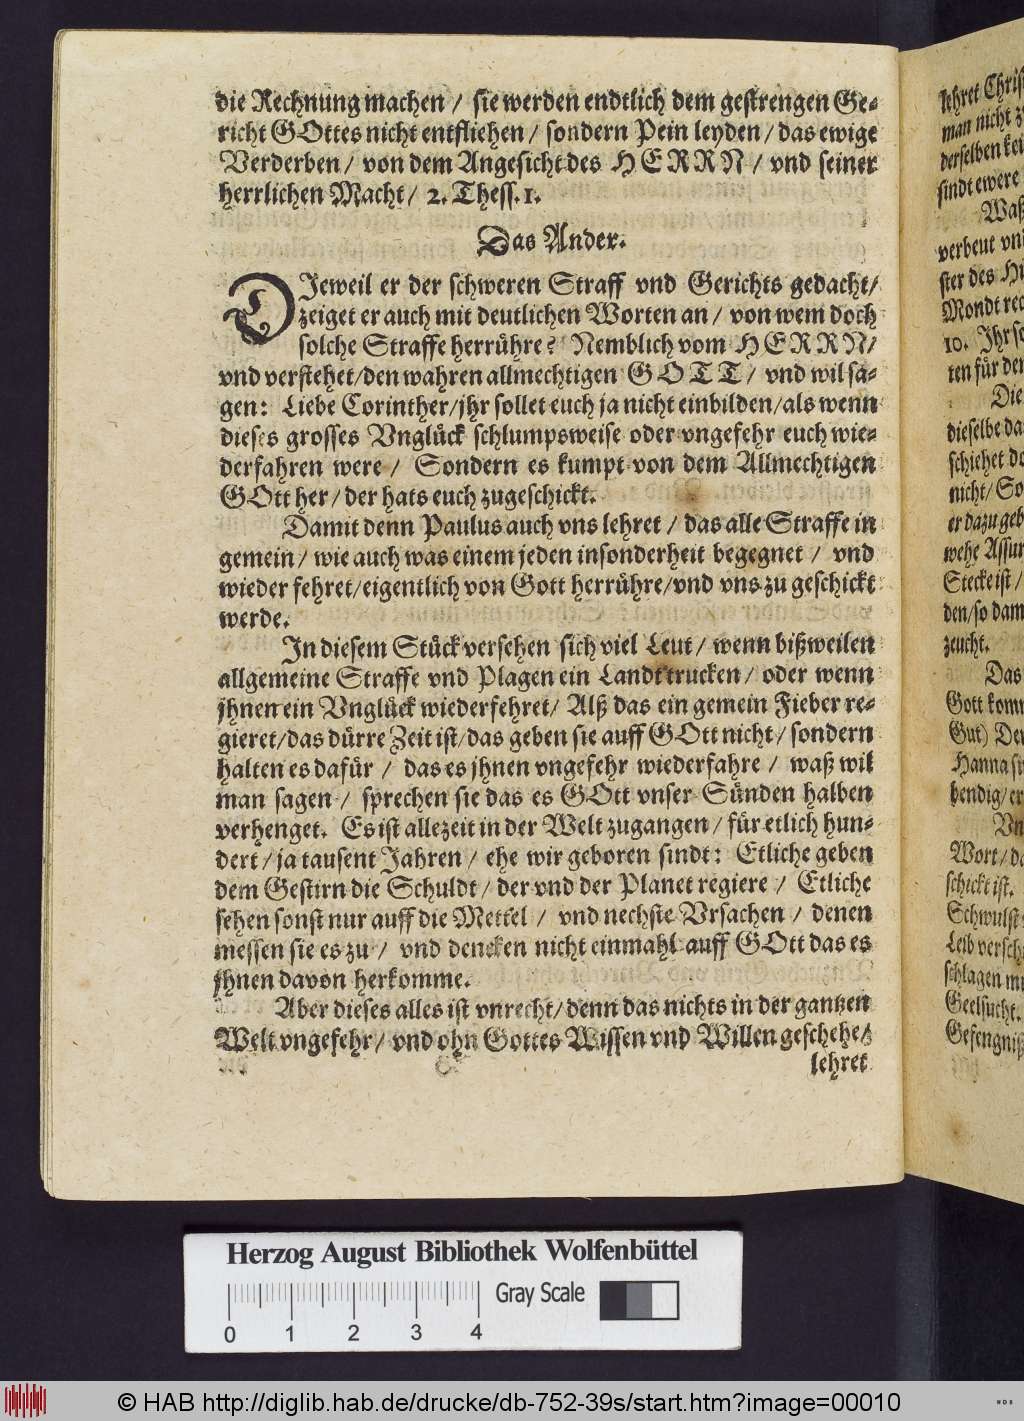 die Rechnung machen / sie werden endtlich dem gestrengen Ge-
richt GOttes nicht entfliehen / sondern Pein leyden / das ewige
Verderben / von dem Angesicht des HERRN / vnd seiner
herrlichen Macht / 2. Thess. 1.
Das Ander.
DJeweil er der schweren Straff vnd Gerichts gedacht /
zeiget er auch mit deutlichen Worten an / von wem doch
solche Straffe herrühre? Nemblich vom HERRN /
vnd verstehet / den wahren allmechtigen GOTT / vnd wil sa-
gen: Liebe Corinther / jhr sollet euch ja nicht einbilden / als wenn
dieses grosses Vnglück schlumpsweise oder vngefehr euch wie-
derfahren were / Sondern es kumpt von dem Allmechtigen
GOtt her / der hats euch zugeschickt.
Damit denn Paulus auch vns lehret / das alle Straffe in
gemein / wie auch was einem jeden insonderheit begegnet / vnd
wieder fehret / eigentlich von Gott herrühre / vnd vns zu geschickt
werde.
In diesem Stück versehen sich viel Leut / wenn bißweilen
allgemeine Straffe vnd Plagen ein Landt trucken / oder wenn
jhnen ein Vnglück wiederfehret / Alß das ein gemein Fieber re-
gieret / das dürre Zeit ist / das geben sie auff GOtt nicht / sondern
halten es dafür / das es jhnen vngefehr wiederfahre / waß wil
man sagen / sprechen sie das es GOtt vnser Sünden halben
verhenget. Es ist allezeit in der Welt zugangen / für etlich hun-
dert / ja tausent Jahren / ehe wir geboren sindt: Etliche geben
dem Gestirn die Schuldt / der vnd der Planet regiere / Etliche
sehen sonst nur auff die Mettel / vnd nechste Vrsachen / denen
messen sie es zu / vnd dencken nicht einmahl auff GOtt das es
jhnen davon herkomme.
Aber dieses alles ist vnrecht / denn das nichts in der gantzen
Welt vngefehr / vnd ohn Gottes Wissen vnd Willen geschehe /
lehret
lehret Chris
man nicht z
derselben kei
sindt ewere
Waß
verbeut vnd
ster des Hi
Mondt rec
10. Jhr so
ten für den
Die
dieselbe da
schiehet do
nicht / So
er dazu geb
wehe Assur
Stecke ist /
den / so dam
zeucht.
Das
Gott kom
Gut) De
Hanna si
bendig / er
Vn
Wort / da
schickt ist.
Schwulst
Leib versch
schlagen m
Geelsucht.
Gefengniß
Herzog August Bibliothek Wolfenbüttel
Gray Scale
0 1 2 3 4
© HAB http://diglib.hab.de/drucke/db-752-39s/start.htm?image=00010